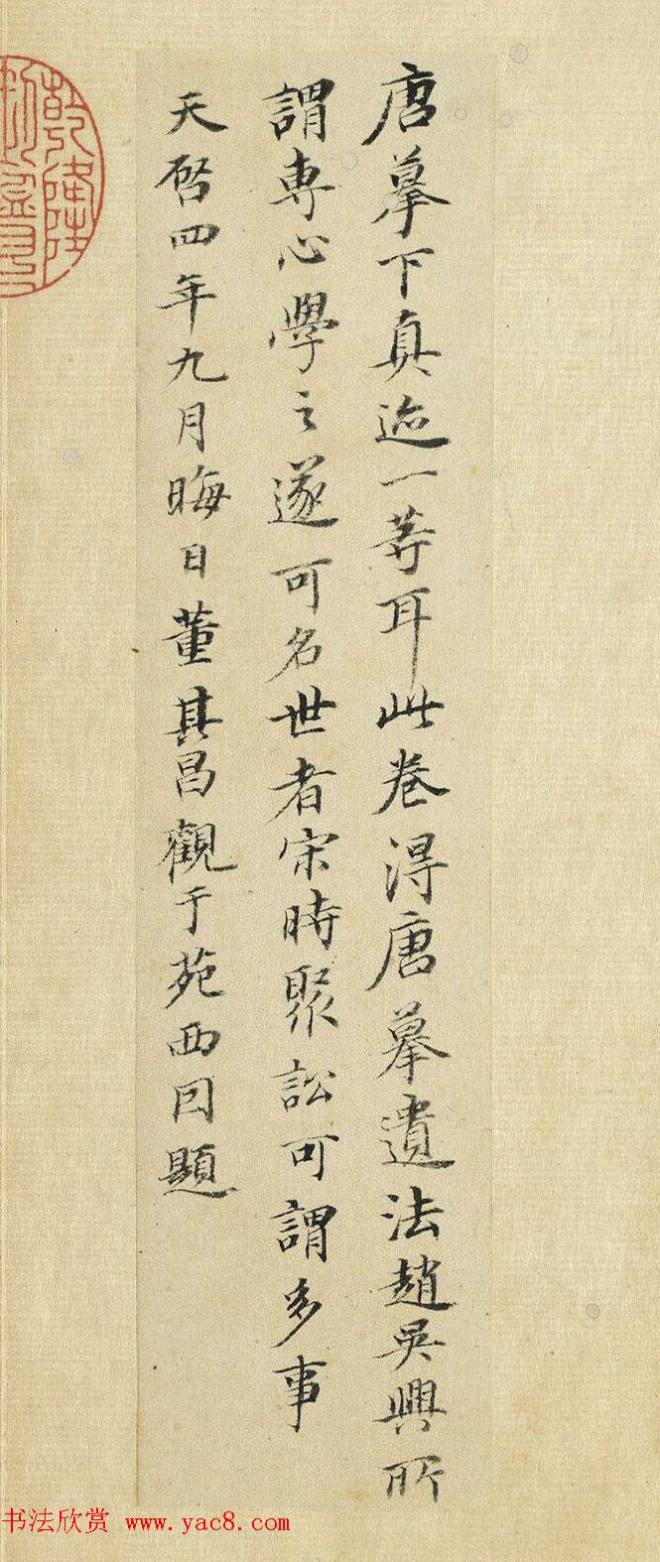 唐摹下真迹一等耳此卷得唐摹遺法趙吳興所
謂專心學之遂可名世者宋時聚訟可謂多事
天啓四年九月晦日董其昌觀于苑西因題
书法欣赏 www.yac8.com